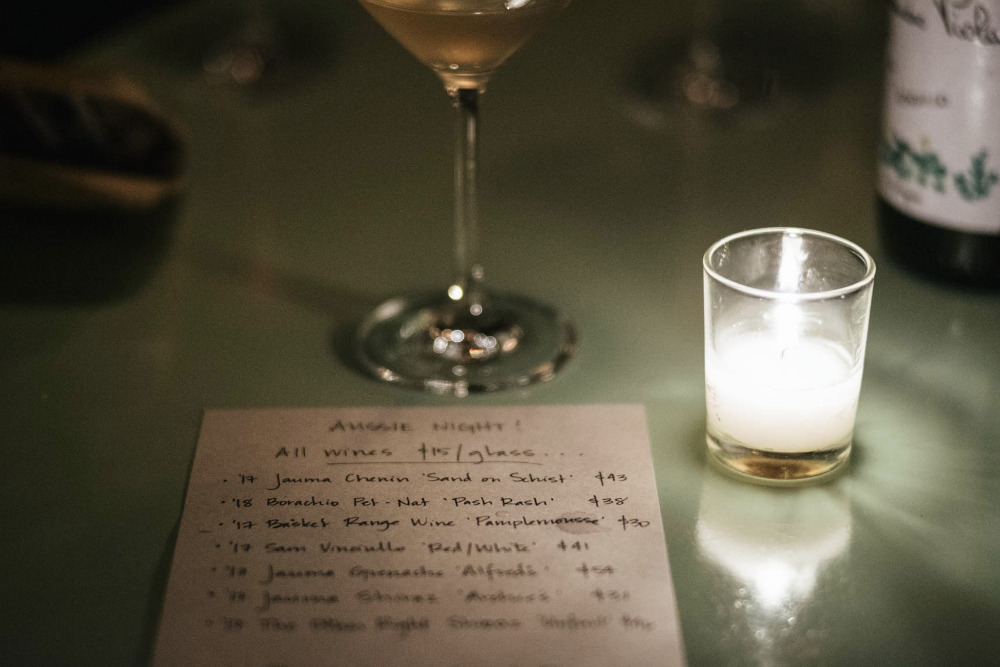 AUSSIE NIGHT!
All wines $15/glass...
• '17 Jauma Chenin 'Sand on Schist' $43
• '18 Borachio Pet-Nat 'Pash Rash' $38
• '17 Basket Range Wine 'Pamplemousse' $30
• '17 Sam Vinciullo 'Red/White' $41
Jauma Grenache 'Alfred's' $54
Jauma Shiraz
The Other Right Shiraz
Viola